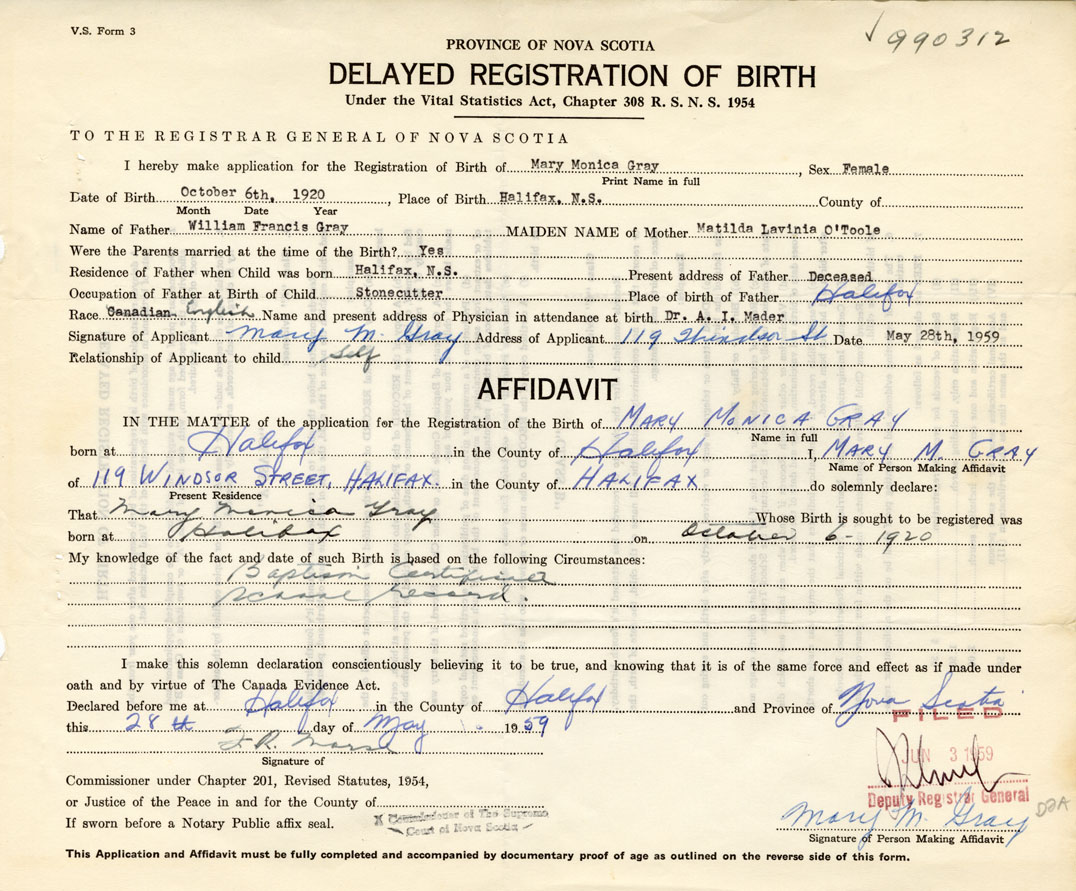 V.S. Form 3
990312
PROVINCE OF NOVA SCOTIA
DELAYED REGISTRATION OF BIRTH
Under the Vital Statistics Act, Chapter 308 R. S. N. S. 1954
TO THE REGISTRAR GENERAL OF NOVA SCOTIA
I hereby make application for the Registration of Birth of Mary Monica Gray, Sex Female
Print Name in full
Date of Birth October 6th, 1920, Place of Birth Halifax, N.S. County of
Month Date Year
Name of Father William Francis Gray MAIDEN NAME of Mother Matilda Lavinia O'Toole
Were the Parents married at the time of the Birth? Yes
Residence of Father when Child was born Halifax, N.S. Present address of Father Deceased
Occupation of Father at Birth of Child Stonecutter Place of birth of Father Halifax
Race Canadian English Name and present address of Physician in attendance at birth Dr. A. I. Mader
Signature of Applicant Mary M. Gray Address of Applicant 119 Windsor St Date May 28th, 1959
Relationship of Applicant to child Self
AFFIDAVIT
IN THE MATTER of the application for the Registration of the Birth of MARY MONICA GRAY
Name in full
born at Halifax in the County of Halifax I, MARY M. GRAY
Name of Person Making Affidavit
of 119 WINDSOR STREET, HALIFAX. in the County of HALIFAX do solemnly declare:
Present Residence
That Mary Monica Gray Whose Birth is sought to be registered was
born at Halifax on October 6 - 1920
My knowledge of the fact and date of such Birth is based on the following Circumstances:
Baptism Certificate
School Record.
I make this solemn declaration conscientiously believing it to be true, and knowing that it is of the same force and effect as if made under
oath and by virtue of The Canada Evidence Act.
Declared before me at Halifax in the County of Halifax and Province of Nova Scotia
this 28th day of May 1959
FILED
JUN 3 1959
Signature of
Deputy Registrar General
Commissioner under Chapter 201, Revised Statutes, 1954,
or Justice of the Peace in and for the County of
If sworn before a Notary Public affix seal.
A Commissioner of The Supreme
Court of Nova Scotia
Mary M. Gray
Signature of Person Making Affidavit
This Application and Affidavit must be fully completed and accompanied by documentary proof of age as outlined on the reverse side of this form.